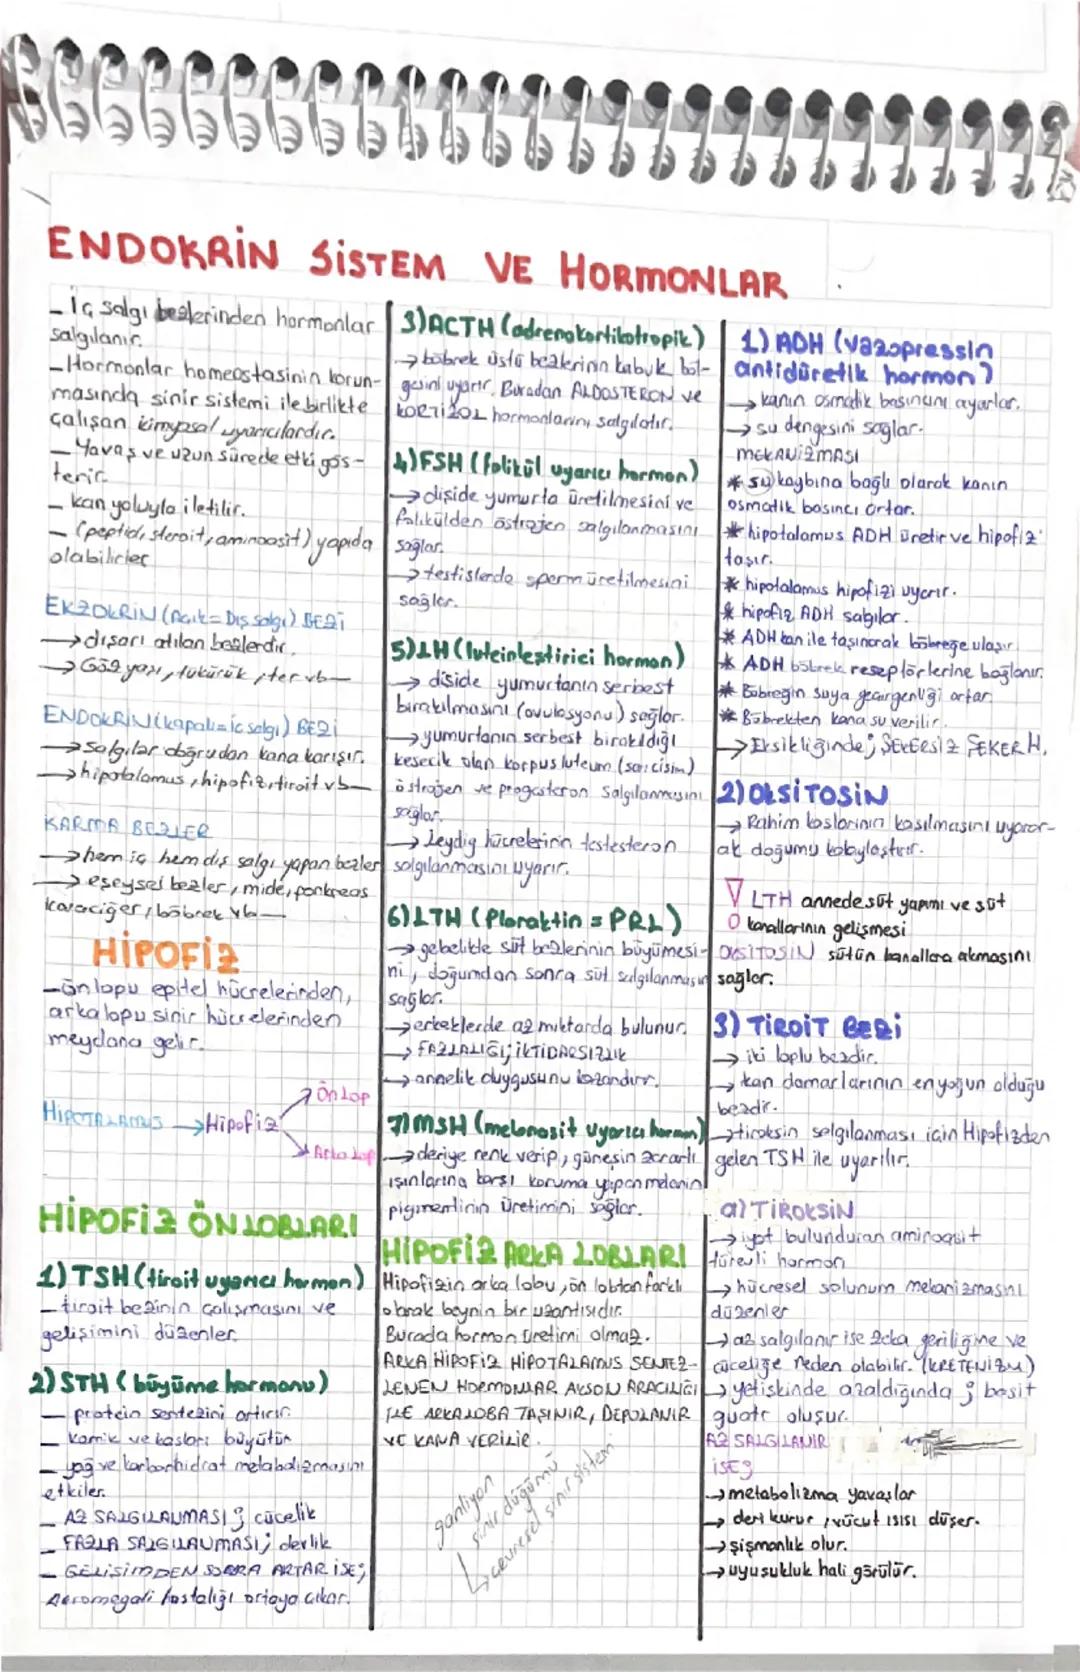 ENDOKRİN SİSTEM VE HORMONLAR
_ İç salgı bezlerinden hormonlar
salgılanır.
_ Hormonlar homeostasinin korun-
masında sinir sistemi ile birlikte
çalışan kimyasal uyarıcılardır.
_ Yavaş ve uzun sürede etki gös-
terir.
_ kan yoluyla iletilir.
_ (peptid, steroit, aminoasit) yapıda
olabilirler
EKZOKRİN (Açık = Dış salgı) BEZİ
→ dışarı atılan bezlerdir.
→ Göz yaşı, tükürük, ter vb—
ENDOKRİN (kapalı = iç salgı) BEZİ
→ salgılar doğrudan kana karışır.
→ hipotalamus, hipofiz, tiroit vb—
KARMA BEZLER
→ hem iç hem dış salgı yapan bezler
→ eşeysel bezler, mide, pankreas
karaciğer, böbrek vb—
HİPOFİZ
_ ön lopu epitel hücrelerinden,
arka lopu sinir hücrelerinden
meydana gelir.
HİPOTALAMUS → Hipofiz
Ön Lop
Arka Lop
HİPOFİZ ÖN LOBLARI
1) TSH (tiroit uyarıcı hormon)
_ tiroit bezinin çalışmasını ve
gelişimini düzenler.
2) STH (büyüme hormonu)
_ protein sentezini artırır.
_ kemik ve kasları büyütür
_ yağ ve karborhidrat metabolizmasını
etkiler.
_ AZ SALGILANMASI; cücelik
_ FAZLA SALGILANMASI; devlik
_ GELİŞİMDEN SONRA ARTAR İSE;
Acromegali hastalığı ortaya çıkar.
3) ACTH (adrenokortikotropik)
→ böbrek üstü bezlerinin kabuk böl-
gesini uyarır. Buradan ALDOSTERON ve
KORTİZOL hormonlarını salgılatır.
4) FSH (folikül uyarıcı hormon)
→ dişide yumurta üretilmesini ve
folikülden östrojen salgılanmasını
sağlar.
→ testislerde sperm üretilmesini
sağlar.
5) LH (luteinleştirici hormon)
→ dişide yumurtanın serbest
bırakılmasını (ovulasyonu) sağlar.
→ yumurtanın serbest bırakıldığı
kesecik olan korpus luteum (sarı cisim)
östrojen ve progesteron salgılanmasını
sağlar.
→ Leydig hücrelerinin testesteron
salgılanmasını uyarır.
6) LTH (Ploraktin = PRL)
→ gebelikte süt bezlerinin büyümesi-
ni, doğumdan sonra süt salgılanmasını
sağlar.
→ erkeklerde az miktarda bulunur.
→ FAZLALIĞI; İKTİDARSIZLIK
→ annelik duygusunu kazandırır.
7) MSH (melonosit uyarıcı hormon)
→ deriye renk verip, güneşin zararlı
ışınlarına karşı koruma yapan melanin
pigmentinin üretimini sağlar.
HİPOFİZ ARKA LOBLARI
Hipofizin arka lobu, ön lobtan farklı
olarak beynin bir uzantısıdır.
Burada hormon üretimi olmaz.
ARKA HİPOFİZ HİPOTALAMUS SENTEZ-
LENEN HORMONLAR AKSON ARACILIĞI
İLE ARKA LOBA TAŞINIR, DEPOLANIR
VE KANA VERİLİR.
ganliyon
sinir düğümü
çevresel sinir sistemi
1) ADH (vazopressin
antidüretik hormon)
→ kanın osmotik basıncını ayarlar.
→ su dengesini sağlar.
MEKANİZMASI
* su kaybına bağlı olarak kanın
osmotik basıncı artar.
* hipotalamus ADH üretir ve hipofiz
taşır.
* hipotalamus hipofizi uyarır.
* hipofiz ADH salgılar.
* ADH kan ile taşınarak böbreğe ulaşır.
* ADH böbrek reseptörlerine bağlanır.
* Böbreğin suya geçirgenliği artar.
* Böbrekten kana su verilir.
→ Eksikliğinde; ŞEKERSİZ ŞEKER H.
2) OKSİTOSİN
→ Rahim kaslarının kasılmasını uyarar-
ak doğumu kolaylaştırır.
LTH annede süt yapımı ve süt
kanallarının gelişmesi
OKSİTOSİN sütün kanallara akmasını
sağlar.
3) TİROİT BEZİ
→ iki loplu bezdir.
→ kan damarlarının en yoğun olduğu
bezdir.
→ tiroksin salgılanması için Hipofizden
gelen TSH ile uyarılır.
a) TİROKSİN
→ iyot bulunduran aminoasit
türevli hormon
→ hücresel solunum mekanizmasını
düzenler
→ az salgılanır ise zeka geriliğine ve
cüceliğe neden olabilir. (KRETENİZM)
→ yetişkinde azaldığında; basit
guatr oluşur.
AZ SALGILANIR
İSE;
→ metabolizma yavaşlar
→ deri kurur, vücut ısısı düşer.
→ şişmanlık olur.
→ uyuşukluk hali görülür.